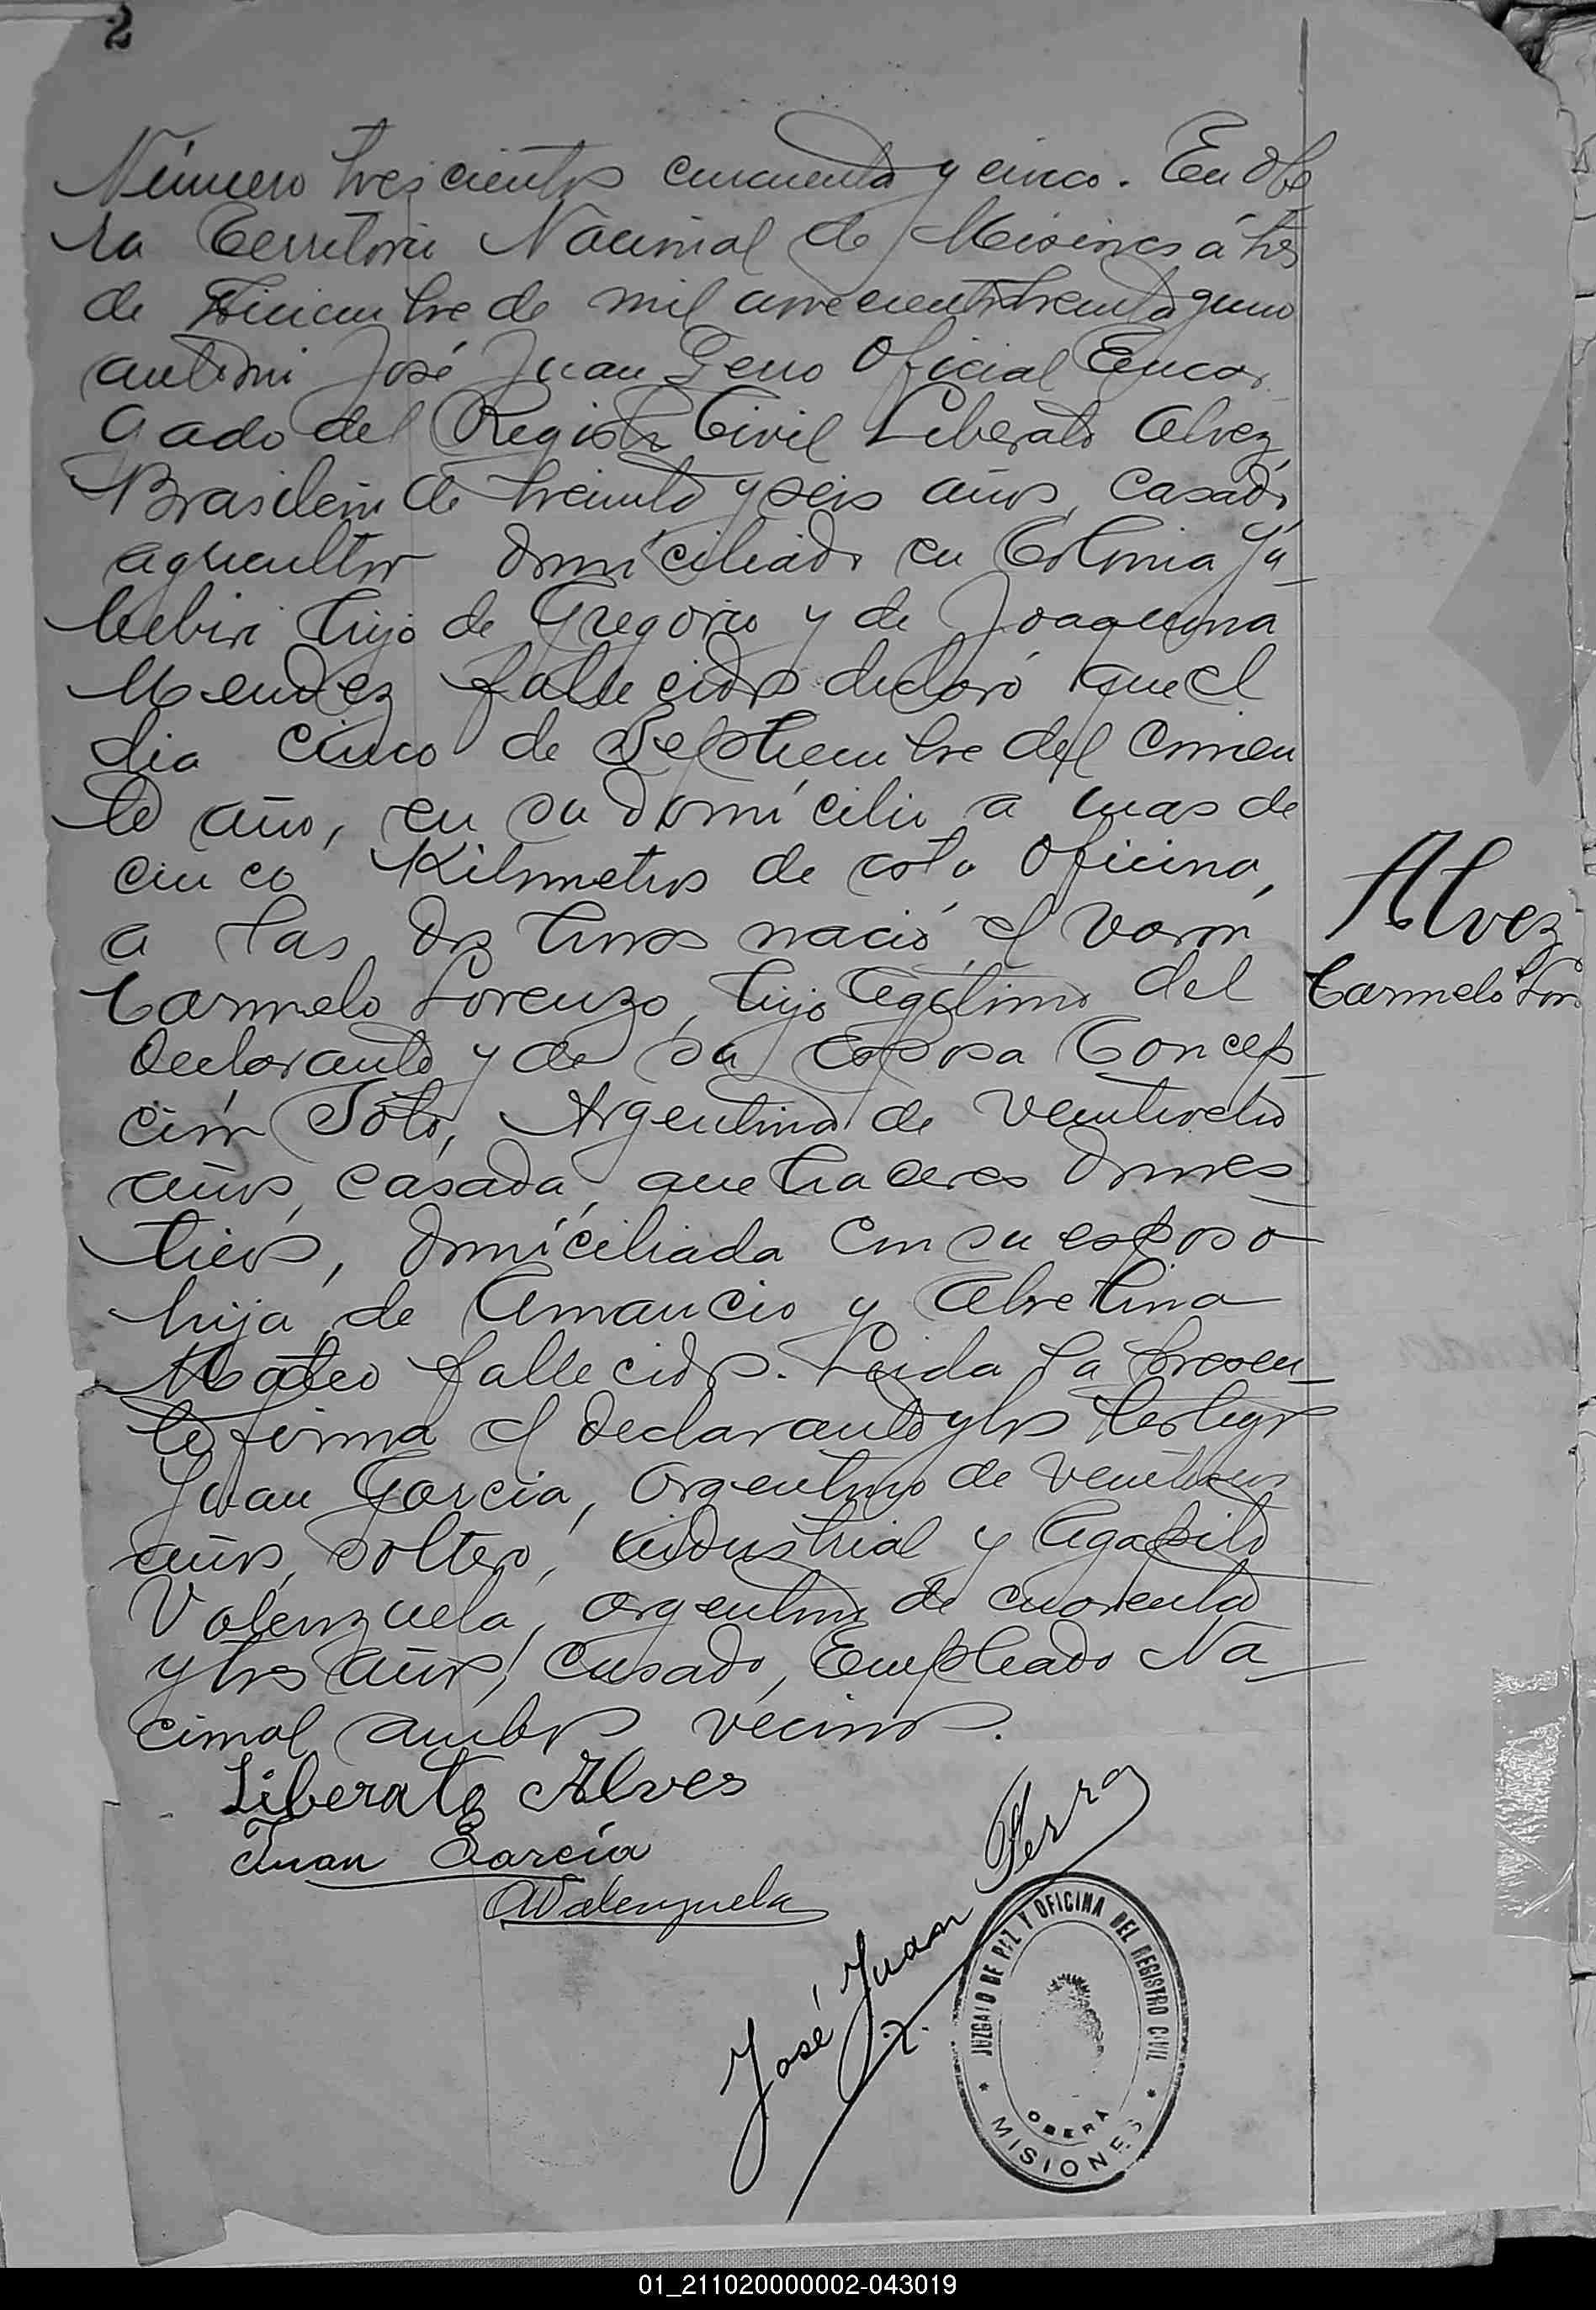 2
Número trescientos cincuenta y cinco. En Obe
ra Territorio Nacional de Misiones á tres
de Diciembre de mil novecientos treinta y uno
ante mi José Juan Ferro Oficial Encar
gado del Registro Civil Liberato Alvez,
Brasilero de treinta y seis años, casado,
agricultor domiciliado en Colonia Ya
bebiri hijo de Gregorio y de Joaquina
Mendez fallecidos declaró que el
dia cinco de Septiembre del corrien
te año, en su domicilio a mas de
cinco Kilometros de esta Oficina,
a las dos horas nació el varon
Carmelo Lorenzo, hijo legitimo del
declarante y de su esposa Concep-
ción Soto, Argentina de veintiocho
años, casada, que haceres domes-
ticos, domiciliada con su esposo
hija de Amancio y Albertina
Mateo fallecidos. Leida la presen-
te firma el declarante y los testigos
Juan Garcia, argentino de
años, soltero, industrial y Agapito
Valenzuela, argentino de cuarenta
y tres años, casado, Empleado Na-
cional ambos vecinos.
Alvez
Carmelo Lor
Liberato Alves
Juan García
AValenzuela
José Juan Ferro
JUZGADO DE PAZ Y OFICINA DEL REGISTRO CIVIL
OBERA
* MISIONES *
01_211020000002-043019